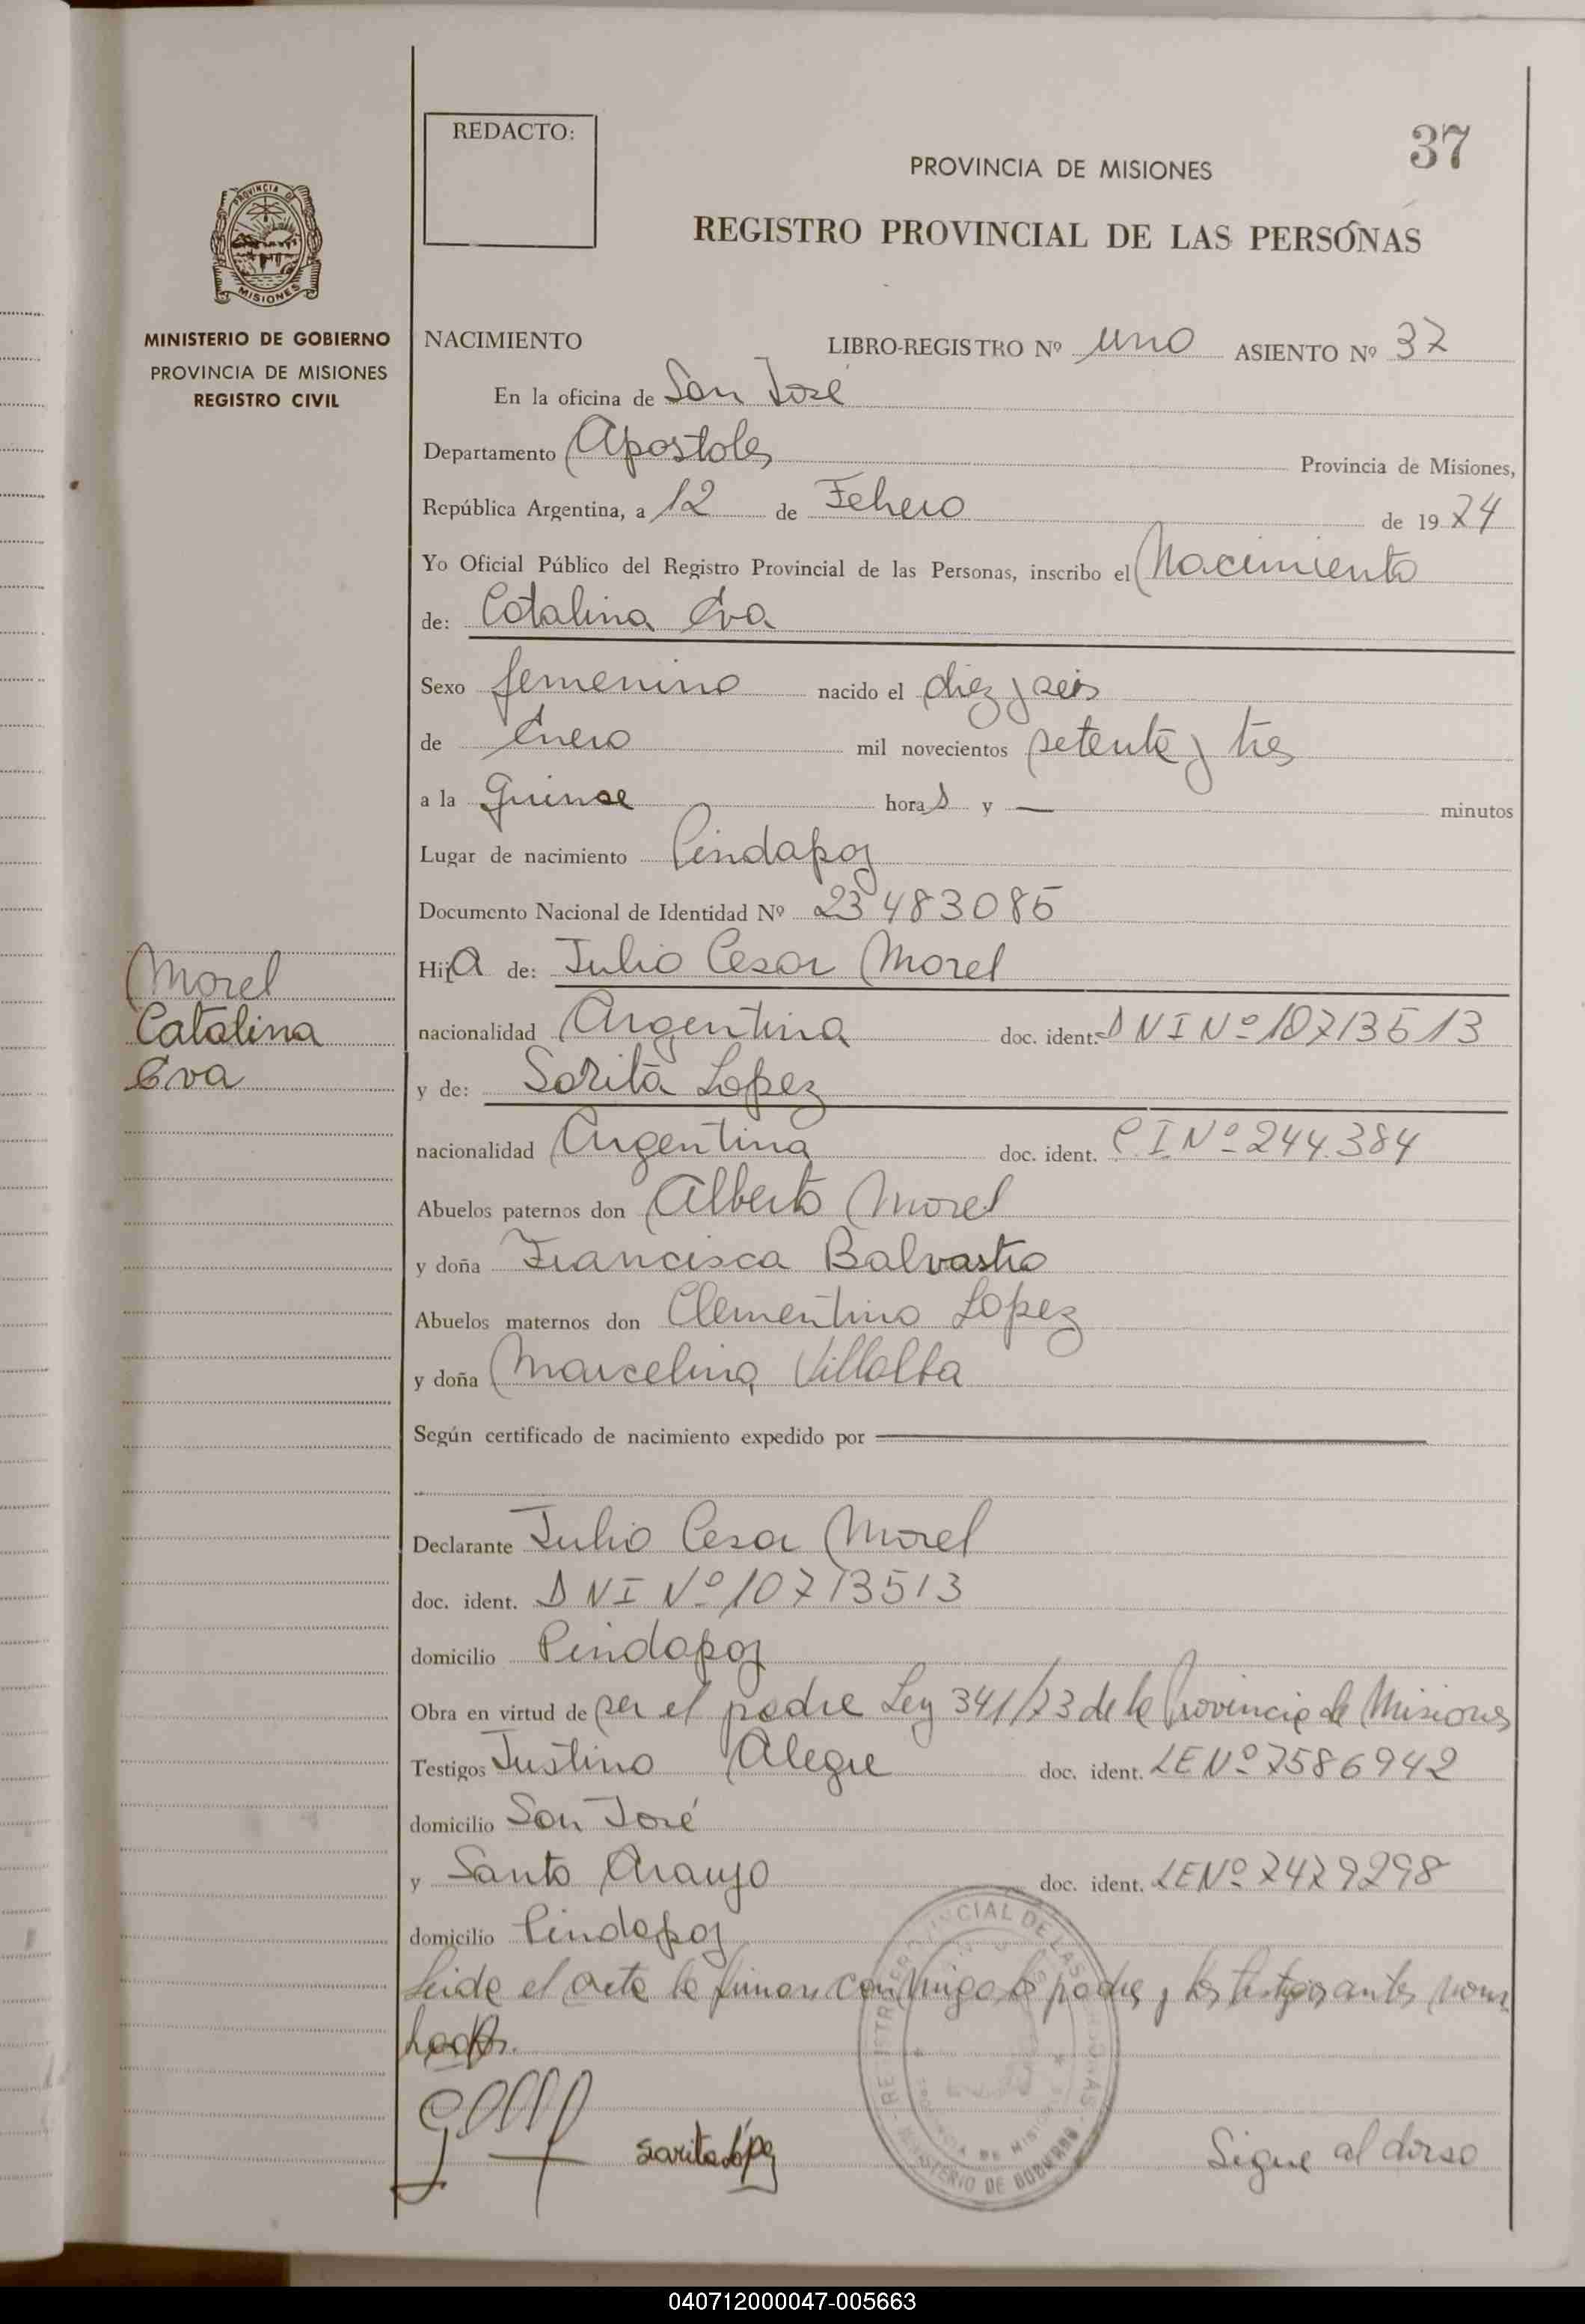 REDACTO:
37
PROVINCIA DE MISIONES
REGISTRO PROVINCIAL DE LAS PERSONAS
PROVINCIA DE
MISIONES
MINISTERIO DE GOBIERNO
PROVINCIA DE MISIONES
REGISTRO CIVIL
NACIMIENTO LIBRO-REGISTRO Nº uno ASIENTO Nº 37
En la oficina de San José
Departamento Apostoles Provincia de Misiones,
República Argentina, a 12 de Febrero de 1974
Yo Oficial Público del Registro Provincial de las Personas, inscribo el Nacimiento
de: Catalina Eva
Sexo femenino nacido el diez y seis
de Enero mil novecientos setenta y tres
a la Quinse horas y — minutos
Lugar de nacimiento Pindapoy
Documento Nacional de Identidad Nº 23483085
Hija de: Julio Cesar Morel
Morel
Catalina
Eva
nacionalidad Argentina doc. ident. DNI Nº 10713513
y de: Sarita Lopez
nacionalidad Argentina doc. ident. C.I Nº 244.384
Abuelos paternos don Alberto Morel
y doña Francisca Balvastro
Abuelos maternos don Clementino Lopez
y doña Marcelina Villalba
Según certificado de nacimiento expedido por
Declarante Julio Cesar Morel
doc. ident. DNI Nº 10713513
domicilio Pindapoy
Obra en virtud de ser el padre Ley 341/73 de la Provincia de Misiones
Testigos Justino Alegre doc. ident. LE Nº 7586942
domicilio San José
y Santo Araujo doc. ident. LE Nº 7479298
domicilio Pindapoy
Leida el acta la firman conmigo los padres y los testigos antes nom
brados.
Sarita López
Sigue al dorso
MINISTERIO DE GOBIERNO
040712000047-005663